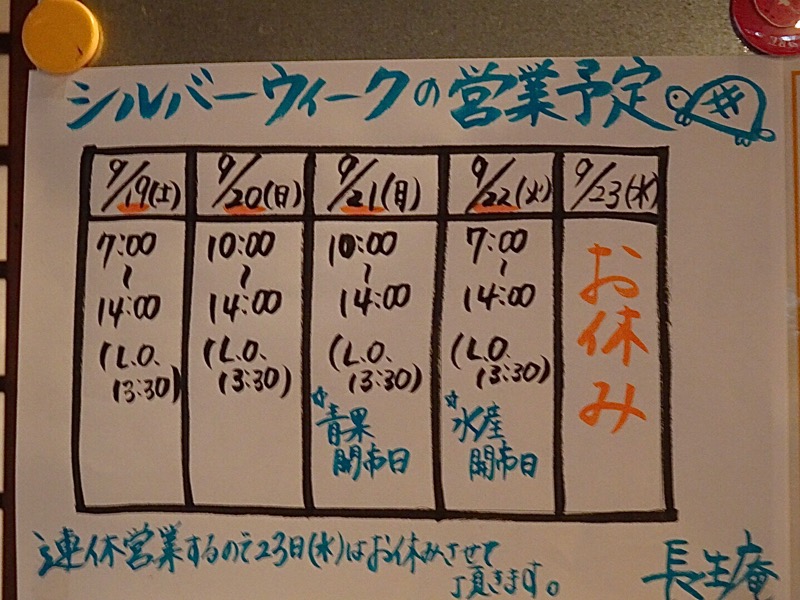 シルバーウィークの営業予定
9/19(土) 9/20(日) 9/21(月) 9/22(火) 9/23(水)
7:00
~
14:00
(L.O.
13:30)
10:00
~
14:00
(L.O.
13:30)
10:00
~
14:00
(L.O.
13:30)
☆青果
開市日
7:00
~
14:00
(L.O.
13:30)
☆水産
開市日
お休み
連休営業するので23日(水)はお休みさせて
頂きます。
長生庵